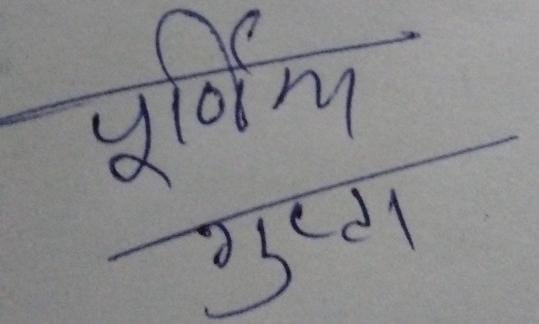 पूर्णिमा
गुप्ता